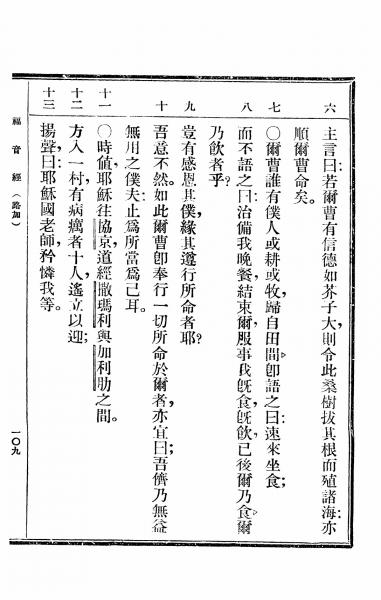 六
主言曰:若爾曹有信德如芥子大,則令此桑樹拔其根而殖諸海,亦
順爾曹命矣。
七
〇爾曹誰有僕人或耕或牧,歸自田間,卽語之曰:速來坐食;
八
而不語之曰:治備我晚餐,結束爾服事我旣食,旣飮已後爾乃食,爾
乃飮者乎?
九
豈有感恩其僕,緣其遵行所命者耶?
十
吾意不然。如此爾曹卽奉行一切所命於爾者,亦宜曰:吾儕乃無益
無用之僕夫,止爲所當爲已耳。
十一
〇時値,耶穌往協京,道經撒瑪利與加利肋之間。
十二
方入一村,有病癘者十人,遙立以迎;
十三
揚聲,曰:耶穌國老師,矜憐我等。
福音經(路加)
一〇九